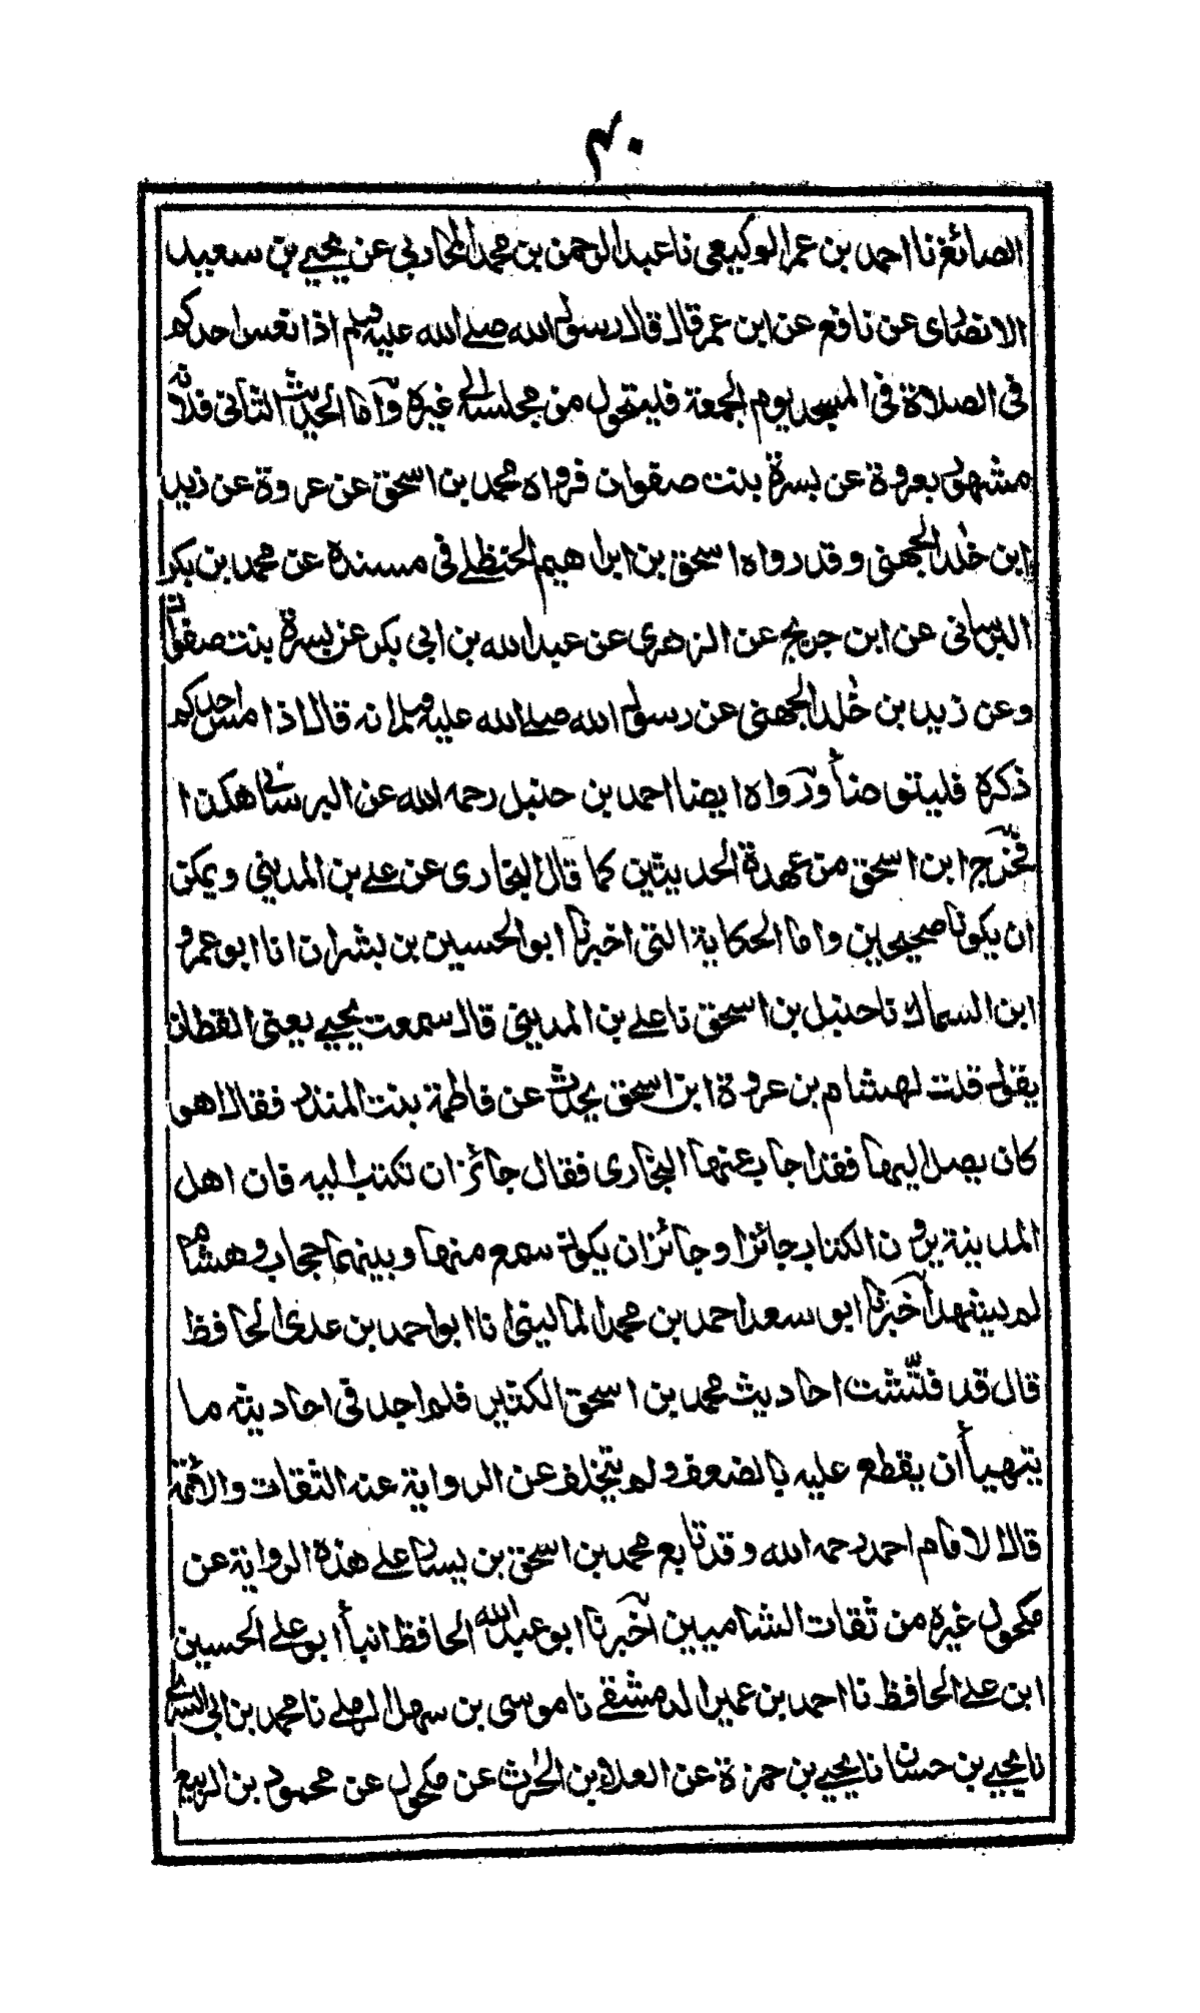 ۴۰
الصائغ نا احمد بن عمر الوكيعي نا عبد الرحمن بن محمد المحاربي عن يحيى بن سعيد
الانصاري عن نافع عن ابن عمر قال قال رسول الله صلى الله عليه وسلم اذا نعس احدكم
في الصلاة في المسجد يوم الجمعة فليتحول من مجلسه الى غيره واما الحديث الثاني فلانه
مشهور بعروة عن بسرة بنت صفوان فرواه محمد بن اسحق عن عروة عن زيد
ابن خلد الجهني وقد رواه اسحق بن ابراهيم الحنظلي في مسنده عن محمد بن بكر
البرساني عن ابن جريج عن الزهري عن عبد الله بن ابي بكر عن بسرة بنت صفوان
وعن زيد بن خلد الجهني عن رسول الله صلى الله عليه وسلم انه قال اذا مس احدكم
ذكره فليتوضأ ورواه ايضا احمد بن حنبل رحمه الله عن البرساني هكذا
فخرج ابن اسحق من عهدة الحديثين كما قال البخاري عن علي بن المديني ويمكن
ان يكونا صحيحين واما الحكاية التي اخبرنا ابو الحسين بن بشران انا ابو عمرو
ابن السماك نا حنبل بن اسحق نا علي بن المديني قال سمعت يحيى يعني القطان
يقول قلت لهشام بن عروة ابن اسحق يحدث عن فاطمة بنت المنذر فقال اهو
كان يصل اليها فقد اجاب عنها البخاري فقال جائز ان تكتب اليه فان اهل
المدينة يرون الكتاب جائزا وجائز ان يكون سمع منها وبينهما حجاب وهشام
لم يشهد اخبرنا ابو سعد احمد بن محمد الماليني انا ابو احمد بن عدي الحافظ
قال قد فتشت احاديث محمد بن اسحق الكثير فلم اجد في احاديثه ما
يتهيأ ان يقطع عليه بالضعف ولم يتخلف عن الرواية عنه الثقات والائمة
قال الامام احمد رحمه الله وقد تابع محمد بن اسحق بن يسار على هذه الرواية عن
مكحول غيره من ثقات الشاميين اخبرنا ابو عبد الله الحافظ انبأ ابو علي الحسين
ابن علي الحافظ نا احمد بن عمير الدمشقي نا موسى بن سهل الرملي نا محمد بن ابي السري
نا يحيى بن حسان نا يحيى بن حمزة عن العلاء بن الحرث عن مكحول عن محمود بن الربيع